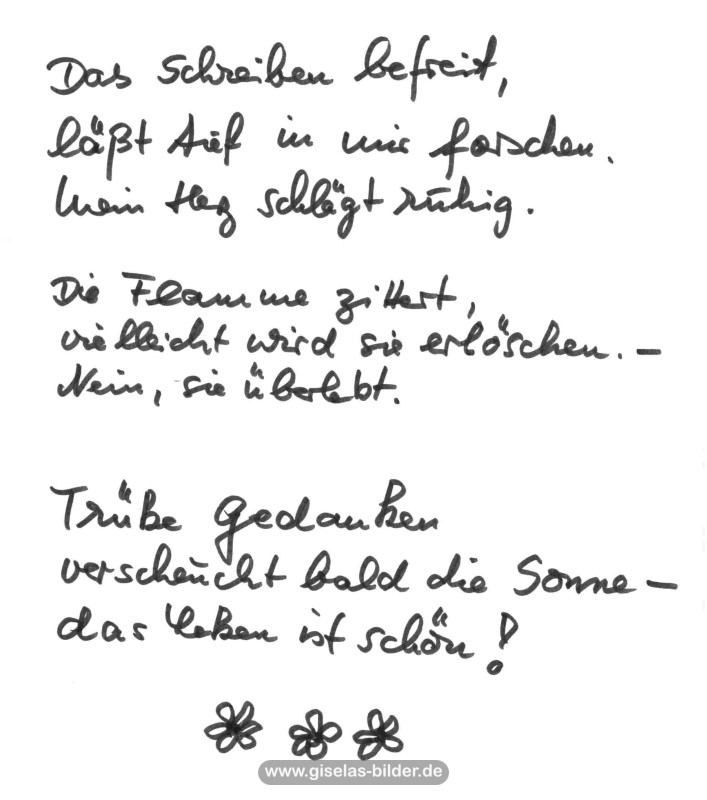 Das Schreiben befreit,
läßt tief in mir forschen.
Mein Herz schlägt ruhig.
Die Flamme zittert,
vielleicht wird sie erlöschen. –
Nein, sie überlebt.
Trübe Gedanken
verscheucht bald die Sonne –
das Leben ist schön!
www.giselas-bilder.de